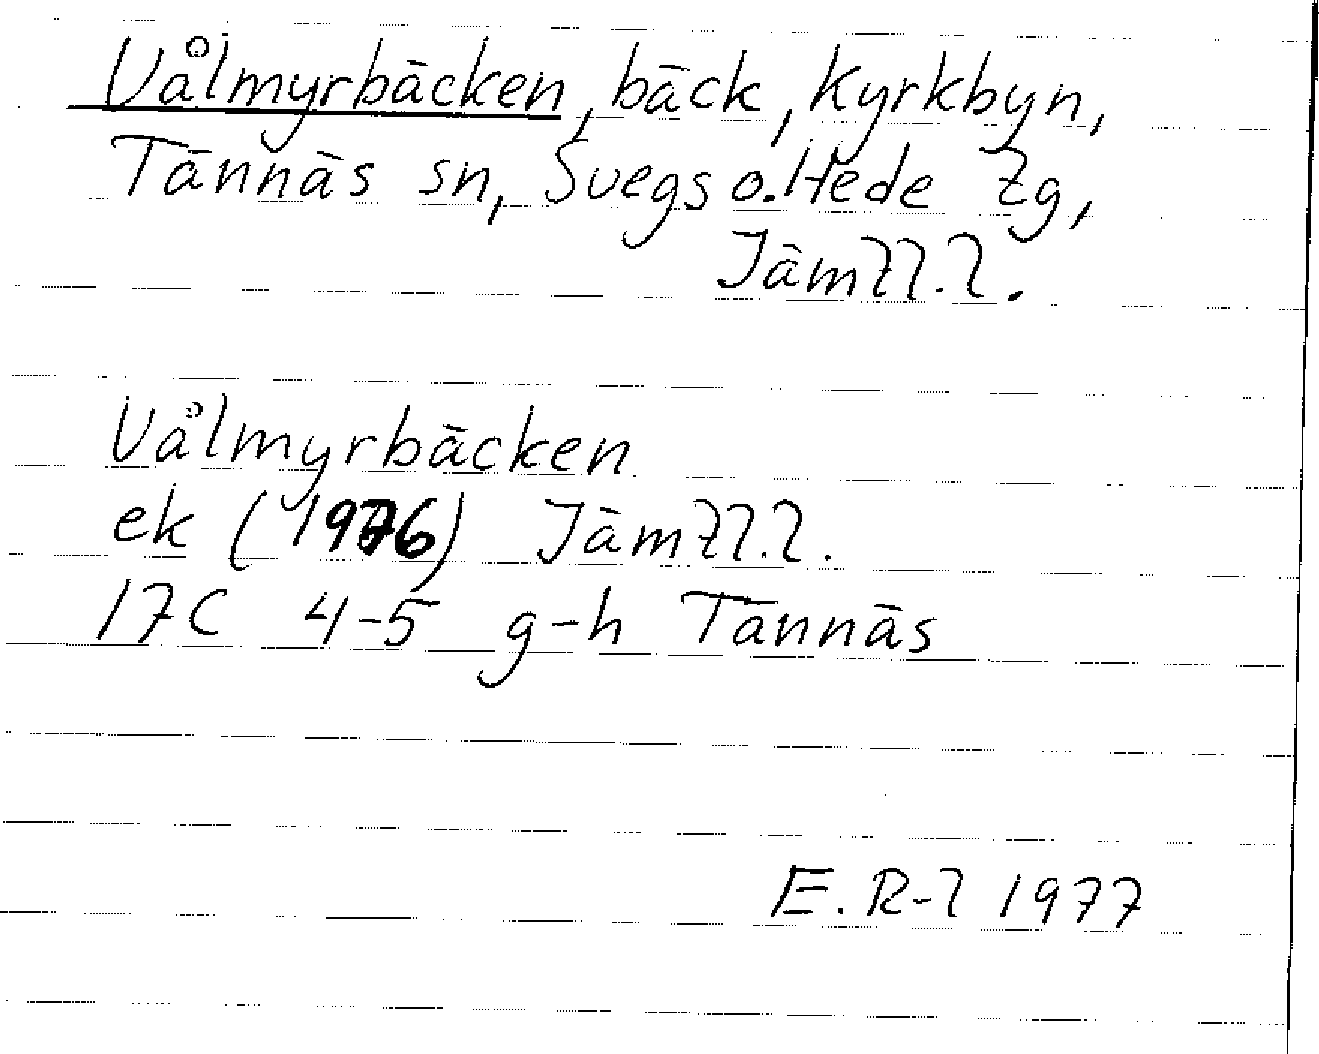 Vålmyrbäcken, bäck, Kyrkbyn,
Tännäs sn, Svegs o. Hede tg,
Jämtl.l.
Vålmyrbäcken
ek (1976) Jämtl.l.
17C 4-5 g-h Tännäs
E. R-l 1977